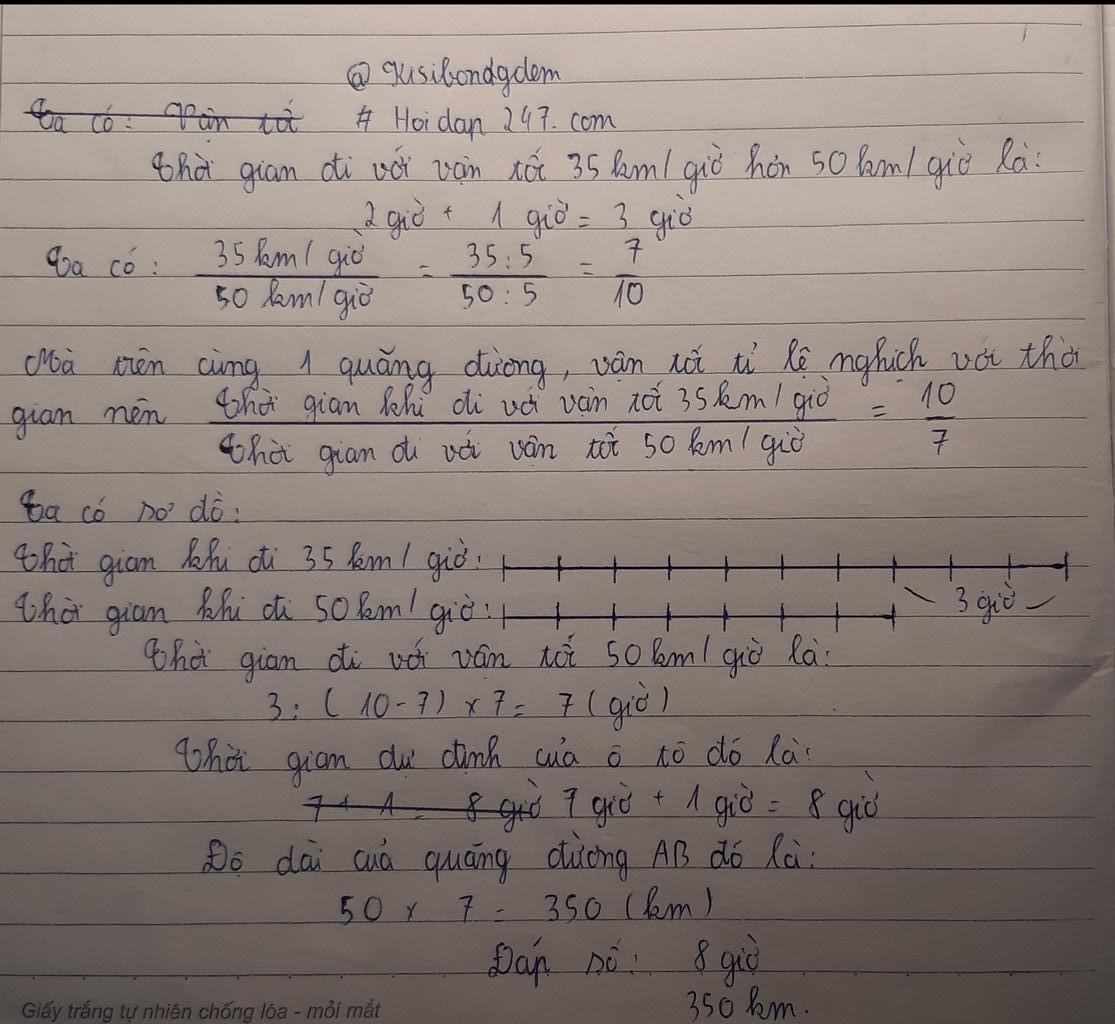 @ Kisibondgdem
Ta có: Vận tố
# Hoidap 247. com
Thời gian đi với vận tốc 35 km/giờ hơn 50 km/giờ là:
2 giờ + 1 giờ = 3 giờ
Ta có: 35 km/giờ / 50 km/giờ = 35:5 / 50:5 = 7/10
Mà trên cùng 1 quãng đường, vận tốc tỉ lệ nghịch với thời
gian nên Thời gian khi đi với vận tốc 35 km/giờ / Thời gian đi với vận tốc 50 km/giờ = 10/7
Ta có sơ đồ:
Thời gian khi đi 35 km/giờ:
Thời gian khi đi 50 km/giờ: 3 giờ
Thời gian đi với vận tốc 50 km/giờ là:
3 : (10 - 7) x 7 = 7 (giờ)
Thời gian dự định của ô tô đó là:
7 + 1 = 8 giờ 7 giờ + 1 giờ = 8 giờ
Độ dài của quãng đường AB đó là:
50 x 7 = 350 (km)
Đáp số: 8 giờ
350 km.
Giấy trắng tự nhiên chống lóa - mỏi mắt